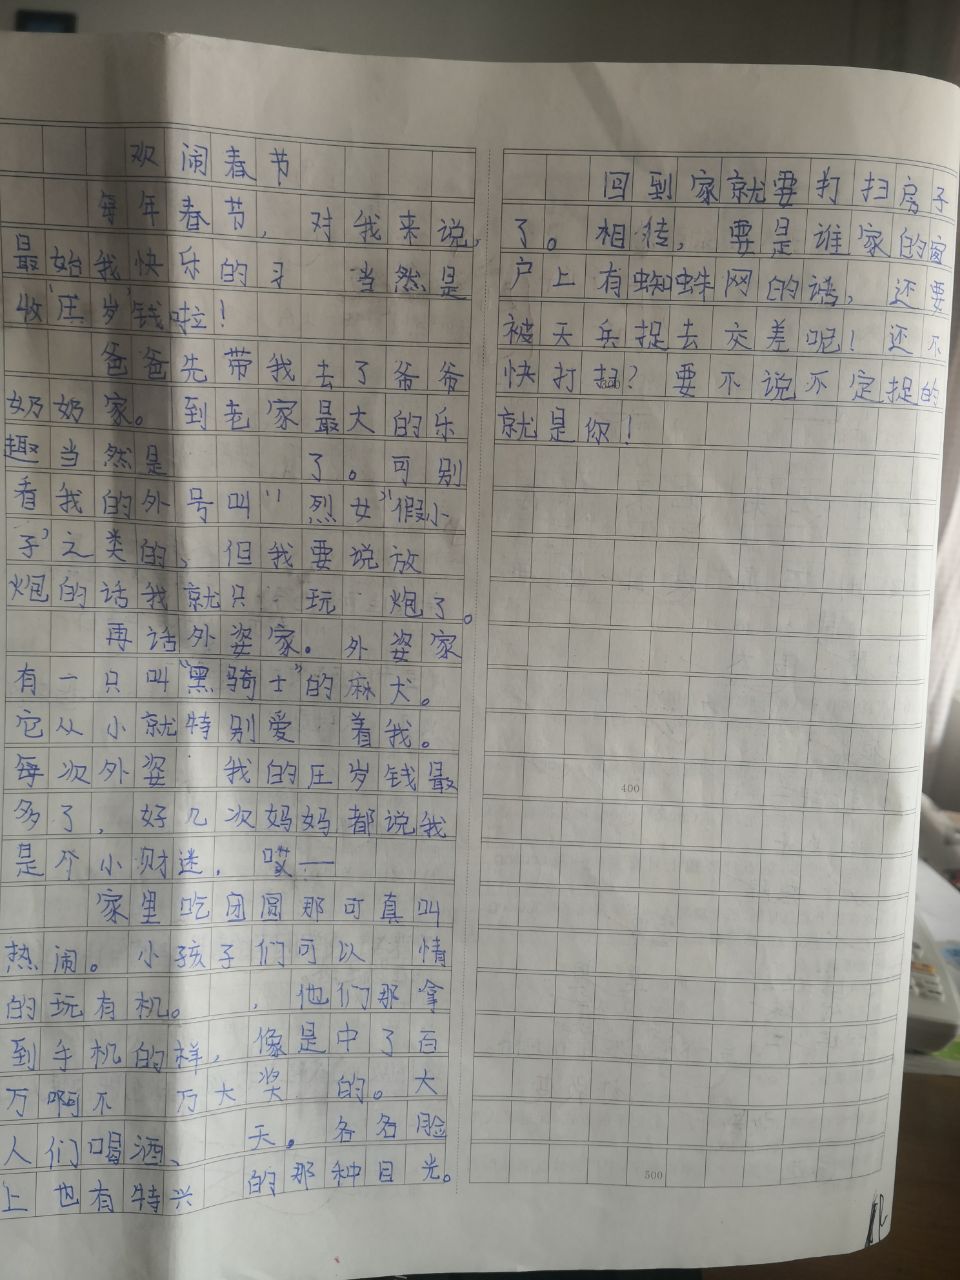 欢闹春节
每年春节，对我来说，
最始我快乐的 当然是
收“压岁”钱啦！
爸爸先带我去了爷爷
奶奶家。到老家最大的乐
趣当然是 了。可别
看我的外号叫“烈女”“假小
子”之类的，但我要说放
炮的话我就只 玩 炮了。
再话外姿家。外姿家
有一只叫“黑骑士”的麻犬。
它从小就特别爱 着我。
每次外姿 我的压岁钱最
多了，好几次妈妈都说我
是个小财迷，哎——
家里吃团圆那可真叫
热闹。小孩子们可以 情
的玩有机。，他们那拿
到手机的样，像是中了百
万啊不 万大奖 的。大
人们喝酒、 天。各名脸
上也有特兴 的那种目光。
回到家就要打扫房子
了。相传，要是谁家的窗
户上有蜘蛛网的话，还要
被天兵捉去交差呢！还不
快打扫？要不说不定捉的
就是你！
400
500